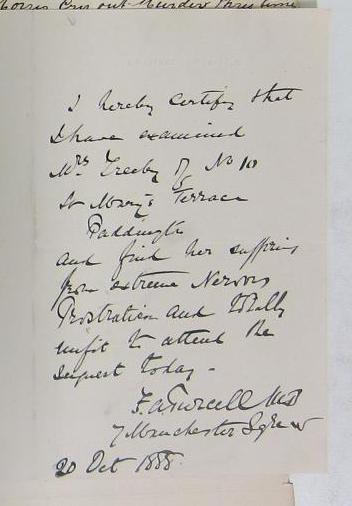 I hereby certify that
I have examined
Mrs Treeby of No 10
St Mary's Terrace
Paddington
and find her suffering
from extreme Nervous
Prostration and totally
unfit to attend the
inquest today -
F. A. Purcell MB
7 Manchester Sqre W
20 Oct 1888.